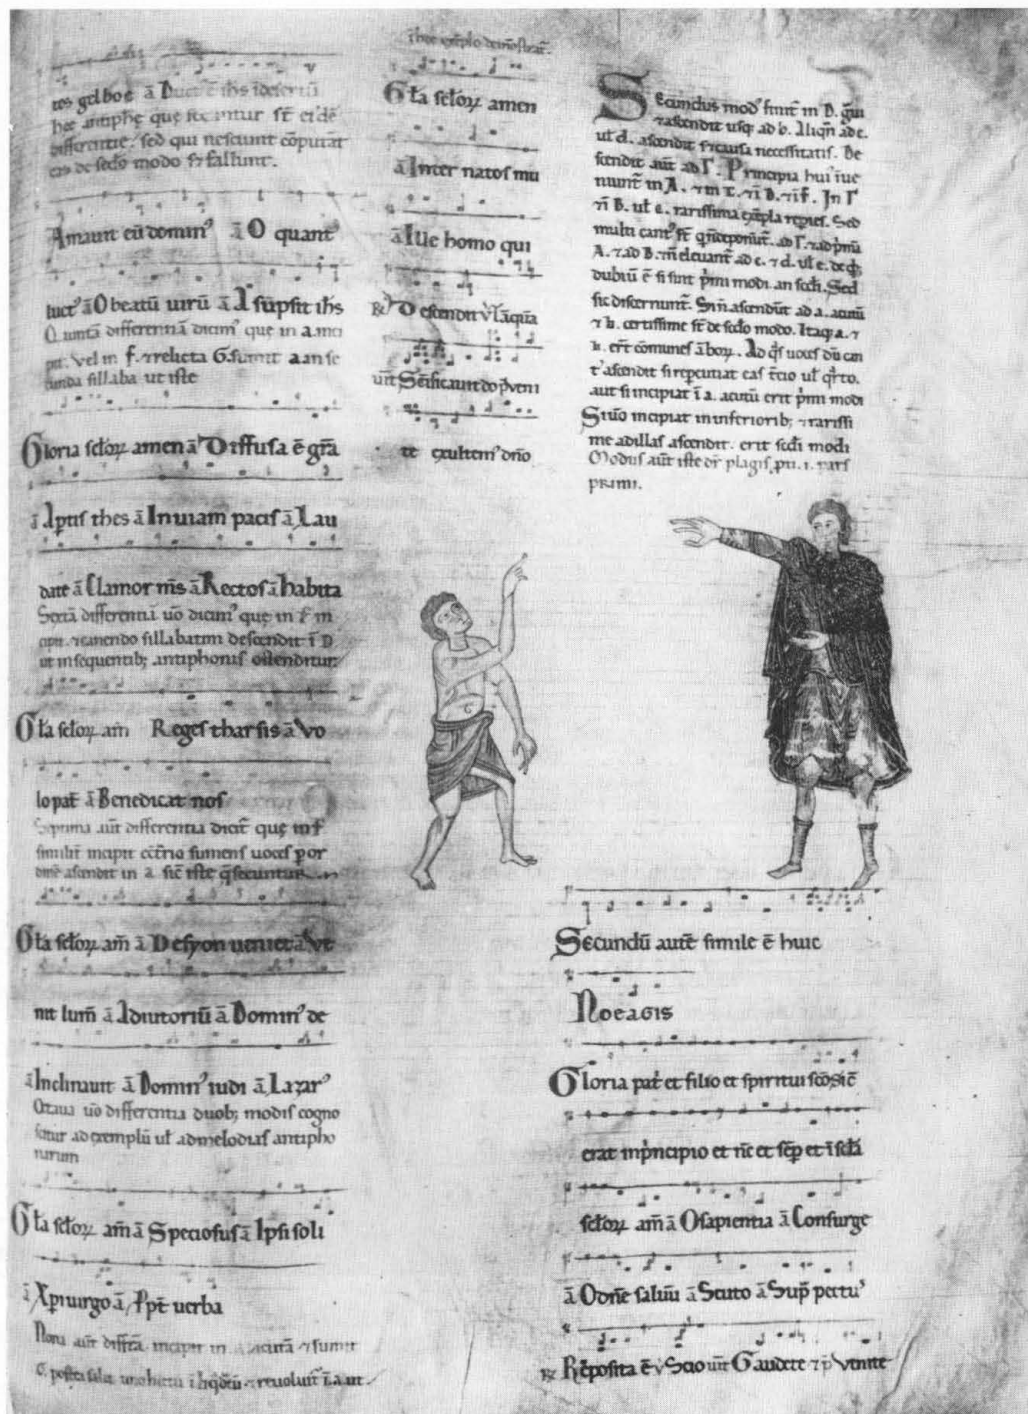 tos gelboe ā Duct' ē ihs idesertū
hee antiphę que secuntur st eidē
differentie. sed qui nesciunt cōputāt
eas de scdo modo fallunt.
Amauit eū domin' ā O quant'
luct' ā O beatū uirū ā Asūpsit ihs
Q uintā differentiā dicim' que in a. inci
pit. Vel in f. et relicta G. sumit a an se
cunda sillaba ut iste
Gloria sclorꝝ amen ā Diffusa ē gr̄a
ā Aptis thes ā In uiam pacis ā Lau
date ā Clamor ms ā Rectos ā habita
Sextā differentiā uō dicim' que in f in
cipit. et canendo sillabatim descendit ī D
ut in sequentib; antiphonis ostenditur
Gl̄a sclorꝝ am̄ Reges tharsis ā Vo
lo pat̄ ā Benedicat nos
Septima aut̄ differentia dicit̄ quę in f
similit̄ incipit ece͞trio sumens uoces por
dinē ascendit in a sic iste q̄ secuntur
Gl̄a sclorꝝ am̄ ā De syon ueniet ā Ve
nit lum̄ ā Adiutoriū ā Domin' de
ā Inclinauit ā Domin' iudi ā Lazar'
Octaua uō differentia duob; modis cogno
scitur ad exemplū ul̄ ad melodias antipho
narum
Gl̄a sclorꝝ am̄ ā Speciosus ā Ipsi soli
ā Xp̄i uirgo ā Ppt̄ uerba
Nona aut̄ diffr̄a incipit in acutā et sumit
ī hec exēplo demōstrat̄.
Gl̄a sclorꝝ amen
ā Inter natos mu
ā Iste homo qui
℟ Descendit v̄ Tāq̄uā
uīt Sc̄ificauit do p̄ Veni
te exultem' dn̄o
Secundus mod' finit̄ in D. qui
et ascendit usq; ad b. Aliqn̄ ad c.
ul̄ d. ascendit sed causa necessitatis. De
scendit aut̄ ad Γ. Principia hui' iue
niunt̄ in A. et in C. et ī D. et ī f. In Γ
et ī B. ul̄ e. rarissima exēpla repies. Sed
multi cant' st̄ qi deponunt̄. ad Γ. et ad p̄mū
A. et ad B. et n̄ eleuant̄ ad c. et d. ul̄ e. de q̄b;
dubiū ē si sint p̄mi modi. an scd̄i. Sed
sic discernunt̄. Si n̄ ascendūt ad a. acutū
et b. certissime st̄ de scdo modo. Itaq; a. et
b. ert̄ cōmunes āborꝝ. Ad q̄s uoces dū can
t' ascendit si repcutiat eas t̄cio ul̄ q̄rto.
aut si incipiat ī a. acutū erit p̄mi modi
Si uō incipiat in inferiorib; et rarissi
me ad illas ascendit. erit scd̄i modi
Modus aut̄ iste dr̄ plagis p̄ti. i. pars
primi.
Secundū autē simile ē huic
Noeagis
Gloria pat̄ et filio et spiritui sc̄o sic̄
erat in p̄ncipio et nc̄ et sēp et ī scl̄a
sclorꝝ am̄ ā O sapientia ā Consurge
ā O dn̄e saluū ā Scuto ā Sup̄ pectu'
℟ Rep̄osita ē v̄ Scio uīt Gaudete et p̄ Venite